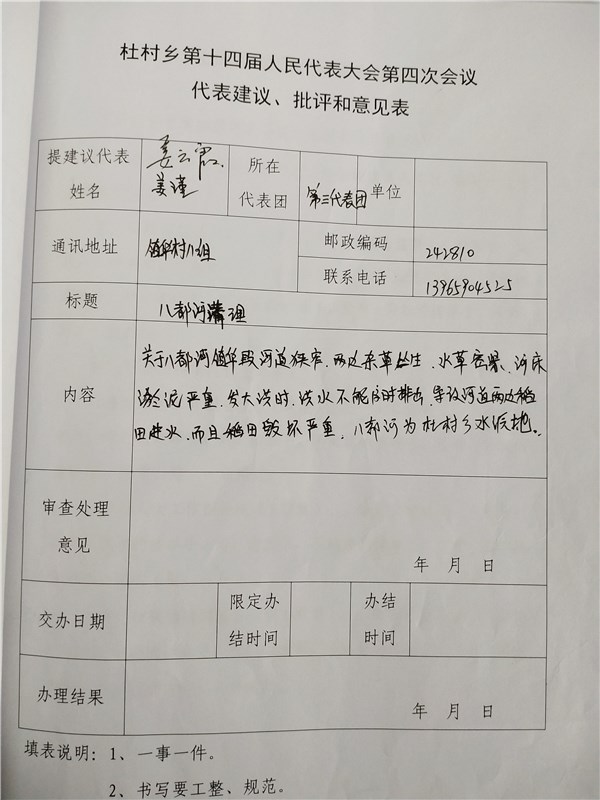 杜村乡第十四届人民代表大会第四次会议
代表建议、批评和意见表
提建议代表姓名
姜云霞
姜瑾
所在代表团
第三代表团
单位
通讯地址
值华村八组
邮政编码
242810
联系电话
13965904525
标题
八都河清理
内容
关于八都河值华段河道狭窄、两边杂草丛生、水草密集、河床
淤泥严重、发大洪时、洪水不能及时排出、导致河道两边稻
田进水、而且稻田毁坏严重、八都河为杜村乡水源地。
审查处理意见
年 月 日
交办日期
限定办结时间
办结时间
办理结果
年 月 日
填表说明：1、一事一件。
2、书写要工整、规范。